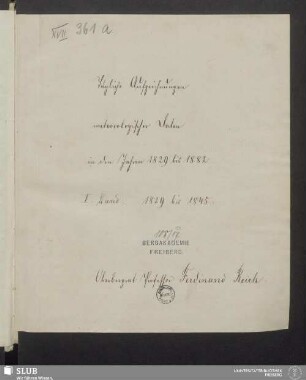 XVII 361 a
Tägliche Aufzeichnungen
meteorologischer Daten
in den Jahren 1829 bis 1882
I Band. 1829 bis 1845.
BERGAKADEMIE
FREIBERG
Oberbergrat Professor Ferdinand Reich
SLUB
Wir führen Wissen.